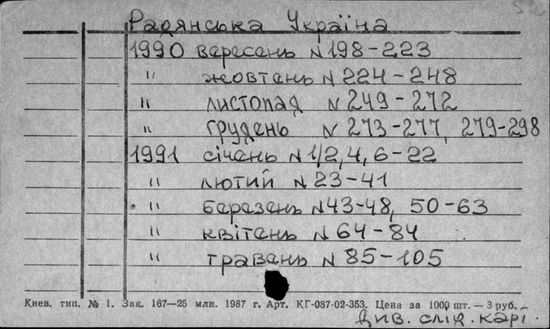 Радянська Україна
1990 вересень N 198-223
" жовтень N 224-248
" листопад N 249-272
" грудень N 273-277, 279-298
1991 січень N 1/2, 4, 6-22
" лютий N 23-41
" березень N 43-48, 50-63
" квітень N 64-84
" травень N 85-105
Киев. тип. № 1. Зак. 167—25 млн. 1987 г. Арт. КГ-087-02-353. Цена за 1000 шт. — 3 руб.
Див. слід. карт.